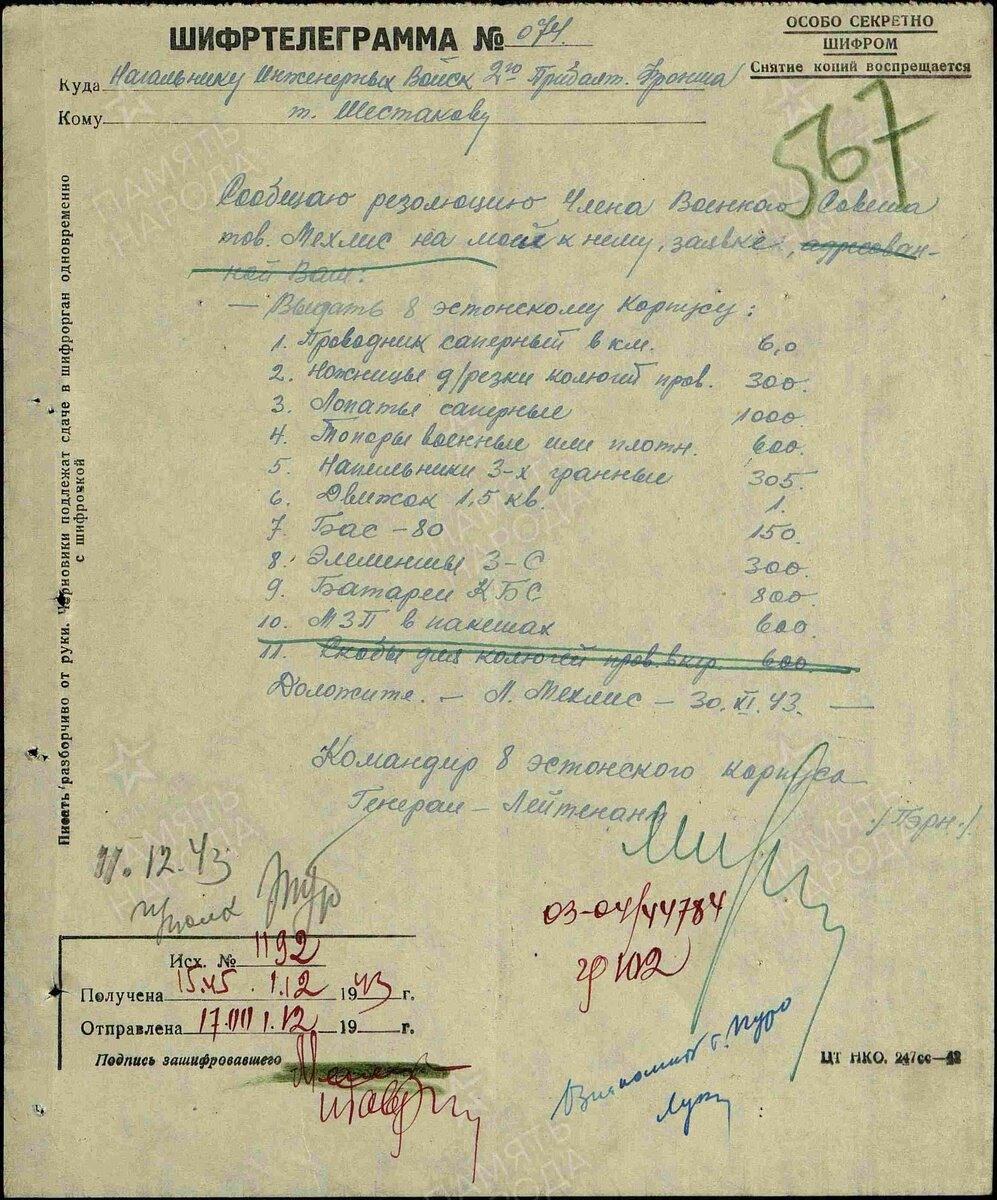 ШИФРТЕЛЕГРАММА № 074.
ОСОБО СЕКРЕТНО
ШИФРОМ
Снятие копий воспрещается
Куда Начальнику Инженерных Войск 2го Прибалт. Фронта
Кому т. Шестакову
567
Сообщаю резолюцию Члена Военного Совета
тов. Мехлис на мой к нему, заявке, адресован-
ной Вам:
— Выдать 8 эстонскому корпусу:
1. Проводник саперный в км. 6,0
2. Ножницы д/резки колючей пров. 300.
3. Лопаты саперные 1000.
4. Топоры военные или плотн. 600.
5. Напильники 3-х гранные 305.
6. Движок 1,5 кв. 1.
7. Бас-80 150.
8. Элементы 3-С 300.
9. Батареи КБС 800.
10. МЗП в пакетах 600.
11. Скобы для колючей пров. в кгр. 600.
Доложите. — Л. Мехлис — 30.XI.43. —
Командир 8 эстонского корпуса
Генерал-Лейтенант /Пэрн./
Писать разборчиво от руки. Черновики подлежат сдаче в шифрорган одновременно
с шифровкой
11.12.43
03-04/44784
гр 102
Исх. № 1192
Получена 15.45 1.12 1943 г.
Отправлена 17.00 1.12 19 г.
Подпись зашифровавшего
ЦТ НКО. 247сс—42
ПАМЯТЬ
НАРОДА